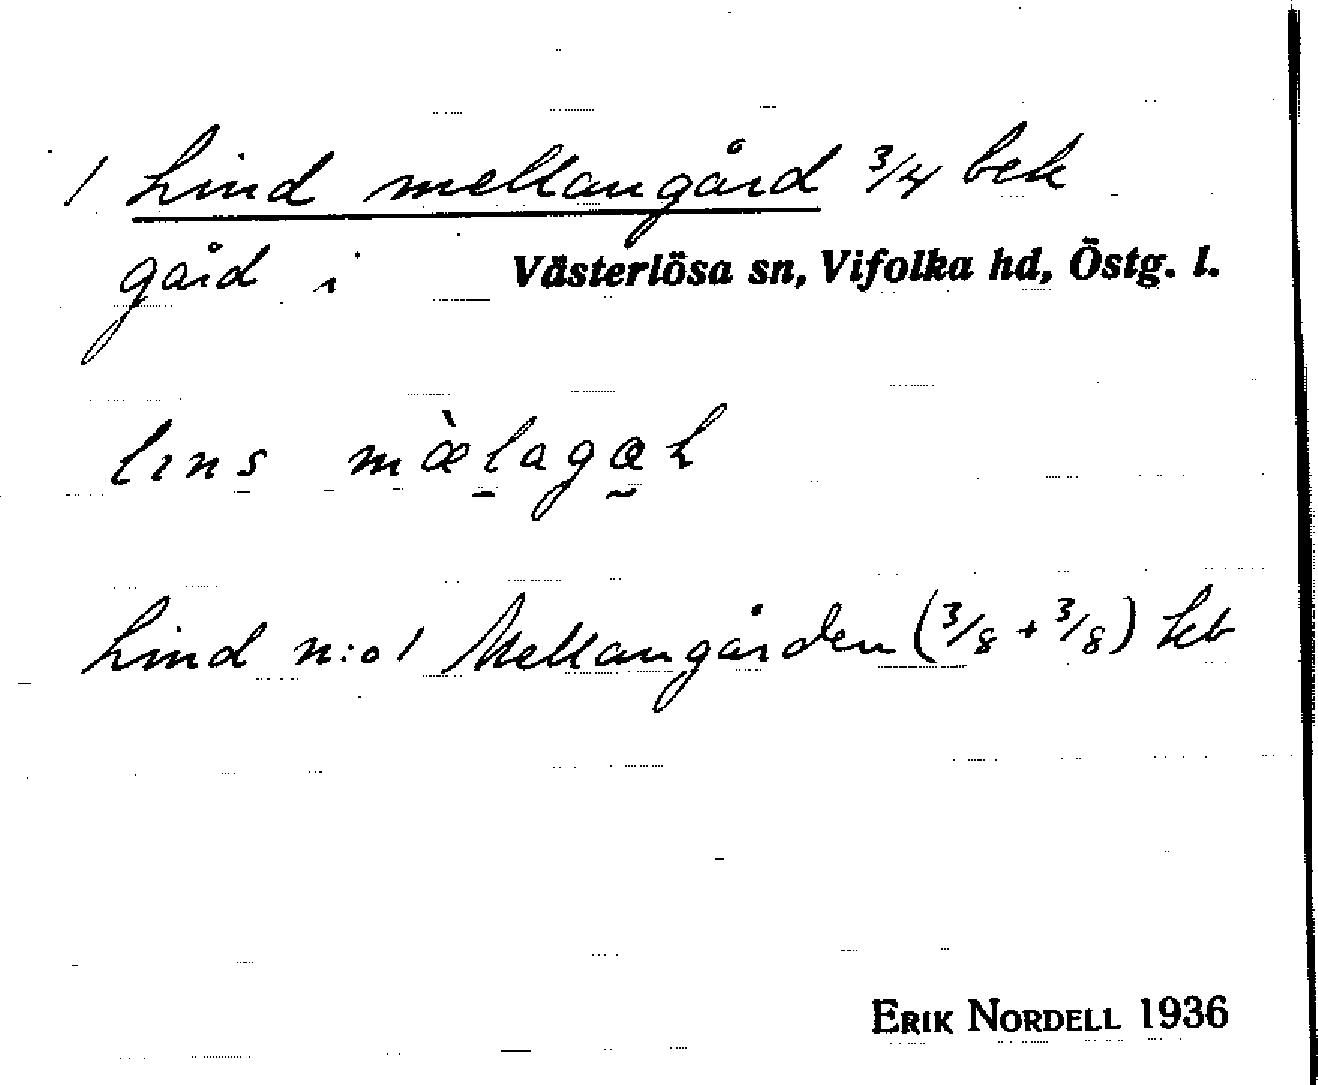 1 Lind mellangård 3/4 bek
gård i Västerlösa sn, Vifolka hd, Östg. l.
lıns mæ̀lagɑɫ
Lind n:o 1 Mellangården (3/8 + 3/8) kb
ERIK NORDELL 1936